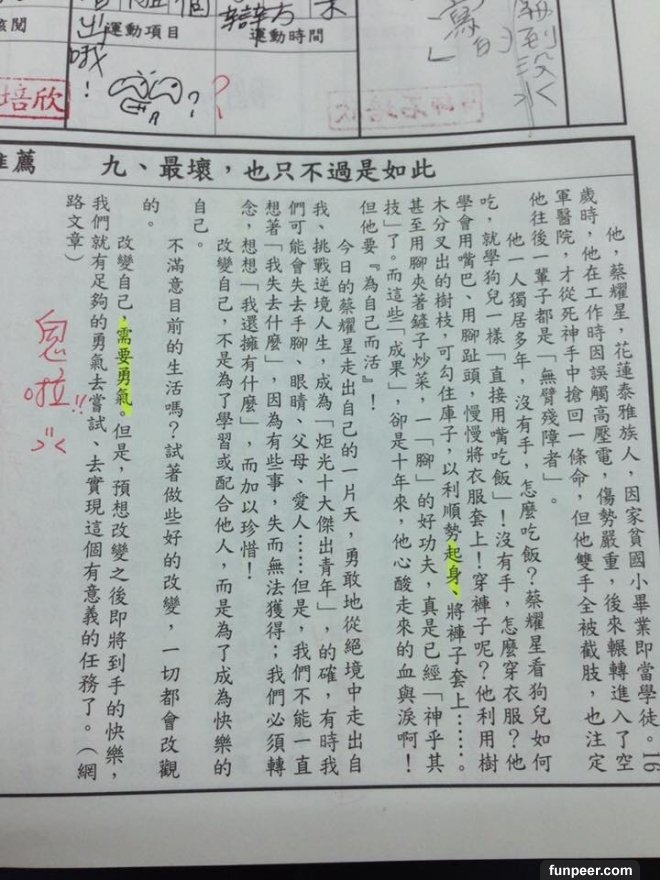 個
運動項目
運動時間
出哦!
??
培欣
寫
推薦
九、最壞,也只不過是如此
他,蔡耀星,花蓮泰雅族人,因家貧國小畢業即當學徒。16
歲時,他在工作時因誤觸高壓電,傷勢嚴重,後來輾轉進入了空
軍醫院,才從死神手中搶回一條命,但他雙手全被截肢,也注定
他往後一輩子都是「無臂殘障者」。
他一人獨居多年,沒有手,怎麼吃飯?蔡耀星看狗兒如何
吃,就學狗兒一樣「直接用嘴吃飯」!沒有手,怎麼穿衣服?他
學會用嘴巴、用腳趾頭,慢慢將衣服套上!穿褲子呢?他利用樹
木分叉出的樹枝,可勾住庫子,以利順勢起身、將褲子套上……。
甚至用腳夾著鏟子炒菜,一「腳」的好功夫,真是已經「神乎其
技」了。而這些「成果」,卻是十年來,他心酸走來的血與淚啊!
但他要『為自己而活』!
今日的蔡耀星走出自己的一片天,勇敢地從絕境中走出自
我、挑戰逆境人生,成為「炬光十大傑出青年」,的確,有時我
們可能會失去手腳、眼睛、父母、愛人……但是,我們不能一直
想著「我失去什麼」,因為有些事,失而無法獲得;我們必須轉
念,想想「我還擁有什麼」,而加以珍惜!
改變自己,不是為了學習或配合他人,而是為了成為快樂的
自己。
不滿意目前的生活嗎?試著做些好的改變,一切都會改觀
的。
改變自己,需要勇氣。但是,預想改變之後即將到手的快樂,
我們就有足夠的勇氣去嘗試、去實現這個有意義的任務了。(網
路文章)
鬼啦!!
funpeer.com